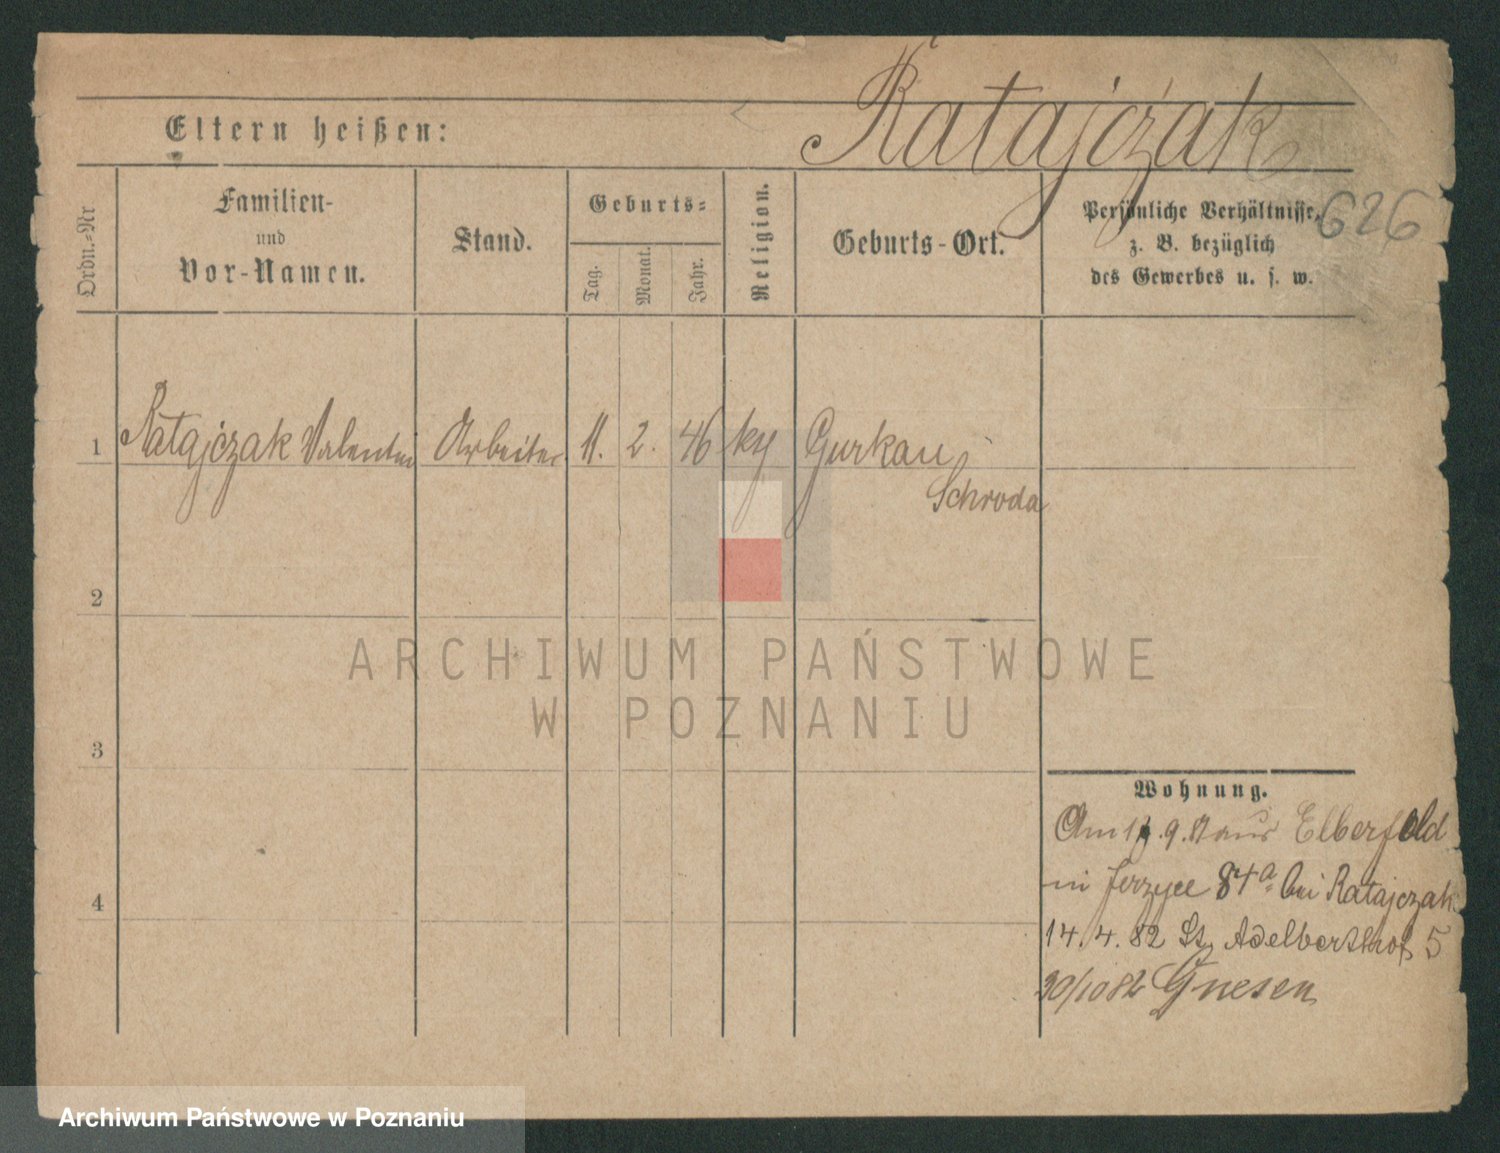 Ratajczak
Eltern heißen:
626
Ordn.=Nr
Familien-
und
Vor-Namen.
Stand.
Geburts=
Tag.
Monat.
Jahr.
Religion.
Geburts-Ort.
Persönliche Verhältnisse,
z. B. bezüglich
des Gewerbes u. s. w.
1 Ratajczak Valentin Arbeiter 11. 2. 46 Gurkau
Schroda
2
3
4
Wohnung.
Am 9. aus Elberfeld
in Jerzyce 84a bei Ratajczak
14. 4. 82 St. Adelberthof 5
30/10 82 Gnesen
ARCHIWUM PAŃSTWOWE
W POZNANIU
Archiwum Państwowe w Poznaniu